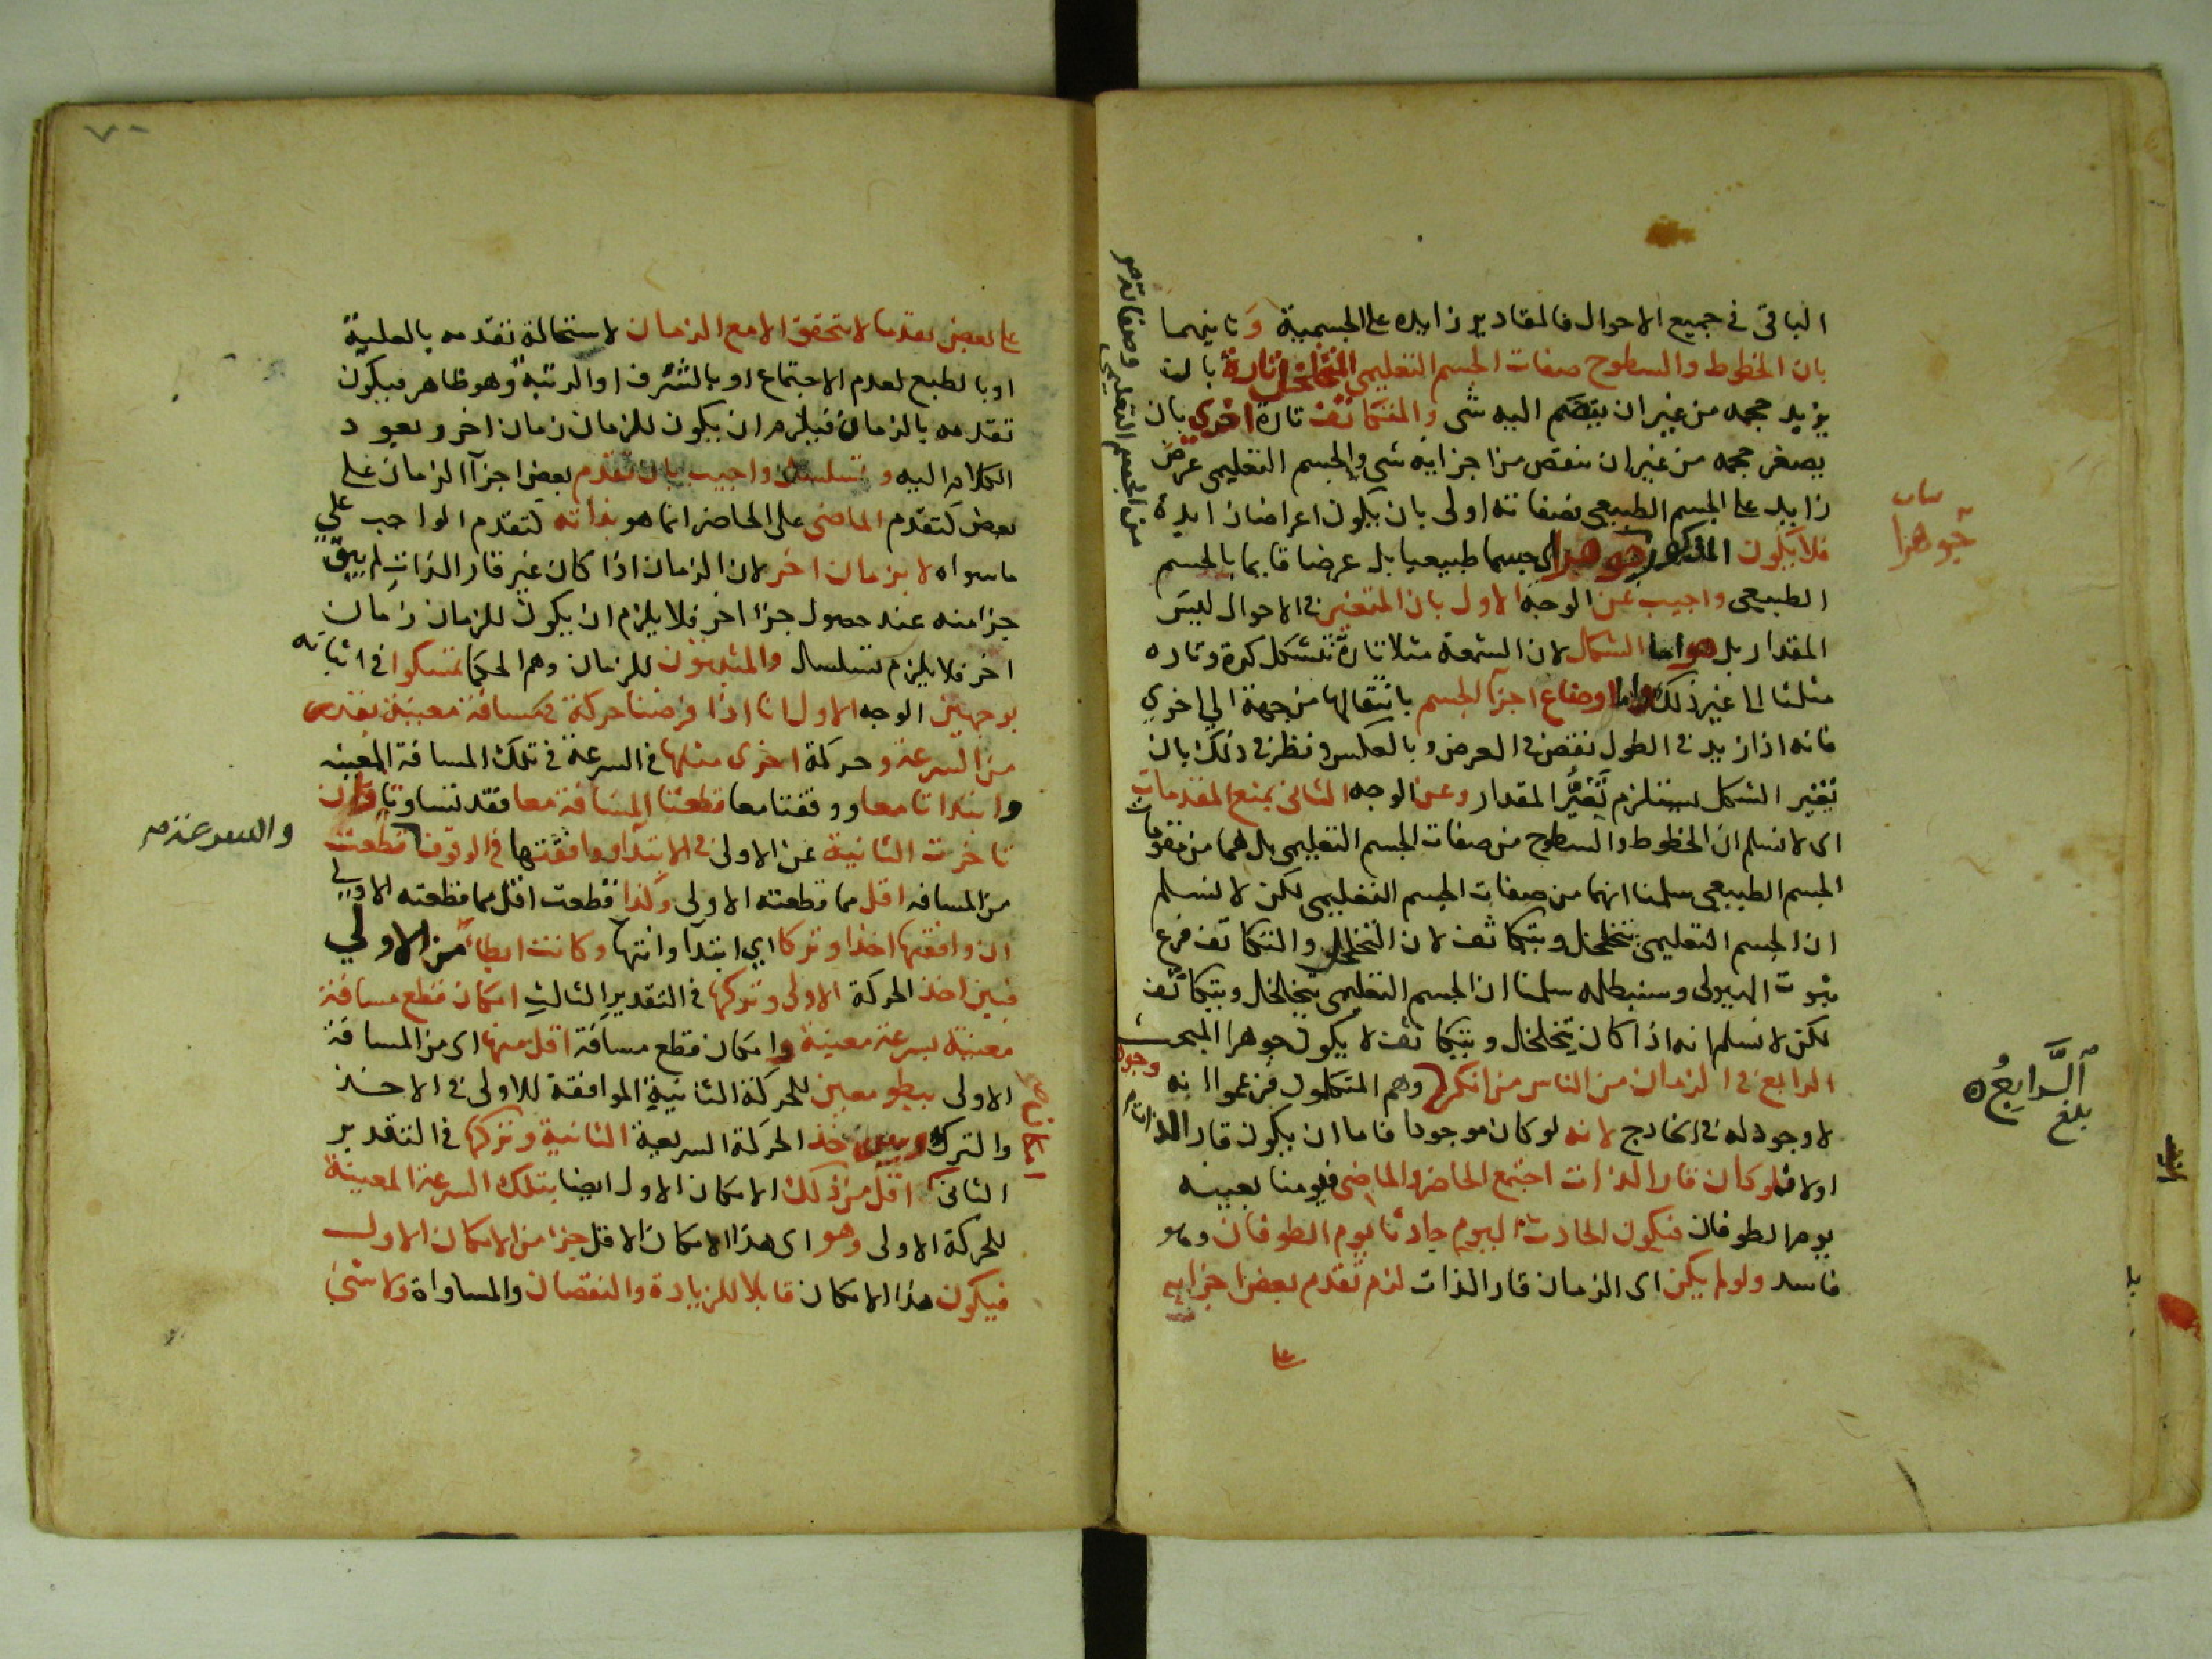 الباقى فى جميع الاحوال فالمقادير زايده على الجسمية وثانيهما
بان الخطوط والسطوح صفات الجسم التعليمى المتخلخل تارة بان
يزيد حجمه من غير ان ينضم اليه شى والمتكاثف تارة اخرى بان
يصغر حجمه من غير ان ينقص من اجزايه شى والجسم التعليمى عرض
زايد على الجسم الطبيعى فصفاته اولى بان يكون اعراضا زايدة
فلا يكون المذكور جوهرا اى جسما طبيعيا بل عرضا قايما بالجسم
الطبيعى واجيب عن الوجه الاول بان المتغير فى الاحوال ليس
المقدار بل هو اما الشكل لان الشمعة مثلا تارة تتشكل كرة وتاره
مثلثا الى غير ذلك واما اوضاع اجزآ الجسم بانتقالها من جهة الي اخري
فانه اذا زيد فى الطول نقص فى العرض وبالعكس ونظر فى ذلك بان
تغير الشكل يستلزم تغير المقدار وعن الوجه الثانى بمنع المقدمات
اى لا نسلم ان الخطوط والسطوح من صفات الجسم التعليمى بل هما من مقومات
الجسم الطبيعى سلمنا انهما من صفات الجسم التعليمى لكن لا نسلم
ان الجسم التعليمى يتخلخل ويتكاثف لان التخلخل والتكاثف فرع
ثبوت الهيولى وسنبطله سلمنا ان الجسم التعليمى يتخلخل ويتكاثف
لكن لا نسلم انه اذا كان يتخلخل ويتكاثف لا يكون جوهرا المبحث
الرابع فى الزمان من الناس من انكر وجوده وهم المتكلمون فزعموا انه
لا وجود له فى الخارج لانه لو كان موجودا فاما ان يكون قار الذات
اولا فلو كان قار الذات اجتمع الحاضر والماضى فيومنا بعينه
يوم الطوفان فيكون الحادث اليوم حادثا يوم الطوفان وهو
فاسد ولو لم يكن اى الزمان قار الذات لزم تقدم بعض اجزايه
على
من الجسم التعليمى وصفاته
بيان
جوهرا
الرابع
بلغ
٧٠
على بعض تقدما لا يتحقق الا مع الزمان لاستحالة تقدمه بالعلية
او بالطبع لعدم الاجتماع او بالشرف او الرتبة وهو ظاهر فيكون
تقدمه بالزمان فيلزم ان يكون للزمان زمان اخر ويعود
الكلام اليه وتسلسل واجيب بان تقدم بعض اجزآ الزمان على
بعض كتقدم الماضى على الحاضر انما هو بذاته كتقدم الواجب علي
ماسواه لا بزمان اخر لان الزمان اذا كان غير قار الذات لم يبق
جزا منه عند حصول جزا اخر فلا يلزم ان يكون للزمان زمان
اخر فلا يلزم تسلسل والمثبتون للزمان وهم الحكما تمسكوا فى اثباته
بوجهين الوجه الاول انا اذا فرضنا حركة فى مسافة معينة بقدر
من السرعة وحركة اخرى مثلها فى السرعة فى تلك المسافة المعينه
وابتداتا معا ووقفتا معا قطعتا المسافة معا فقد تساوتا وان
تاخرت الثانية عن الاولى فى الابتدآ ووافقتها فى الوقوف قطعت
من المسافه اقل مما قطعته الاولى وكذا قطعت اقل مما قطعته الاولي
ان وافقتها اخذا وتركا اي ابتدآ وانتهآ وكانت ابطا من الاولي
فبين اخذ الحركة الاولى وتركها فى التقدير الثالث امكان قطع مسافة
معينة بسرعة معينة وامكان قطع مسافة اقل منها اى من المسافة
الاولى ببطو معين للحركة الثانية الموافقة للاولى فى الاخذ
والترك وبين اخذ الحركة السريعة الثانية وتركها فى التقدير
الثانى اقل من ذلك الامكان الاول ايضا بتلك السرعة المعينة
للحركة الاولى وهو اى هذا الامكان الاقل جزا من الامكان الاول
فيكون هذا الامكان قابلا للزيادة والنقصان والمساواة ولا شئ
امكان